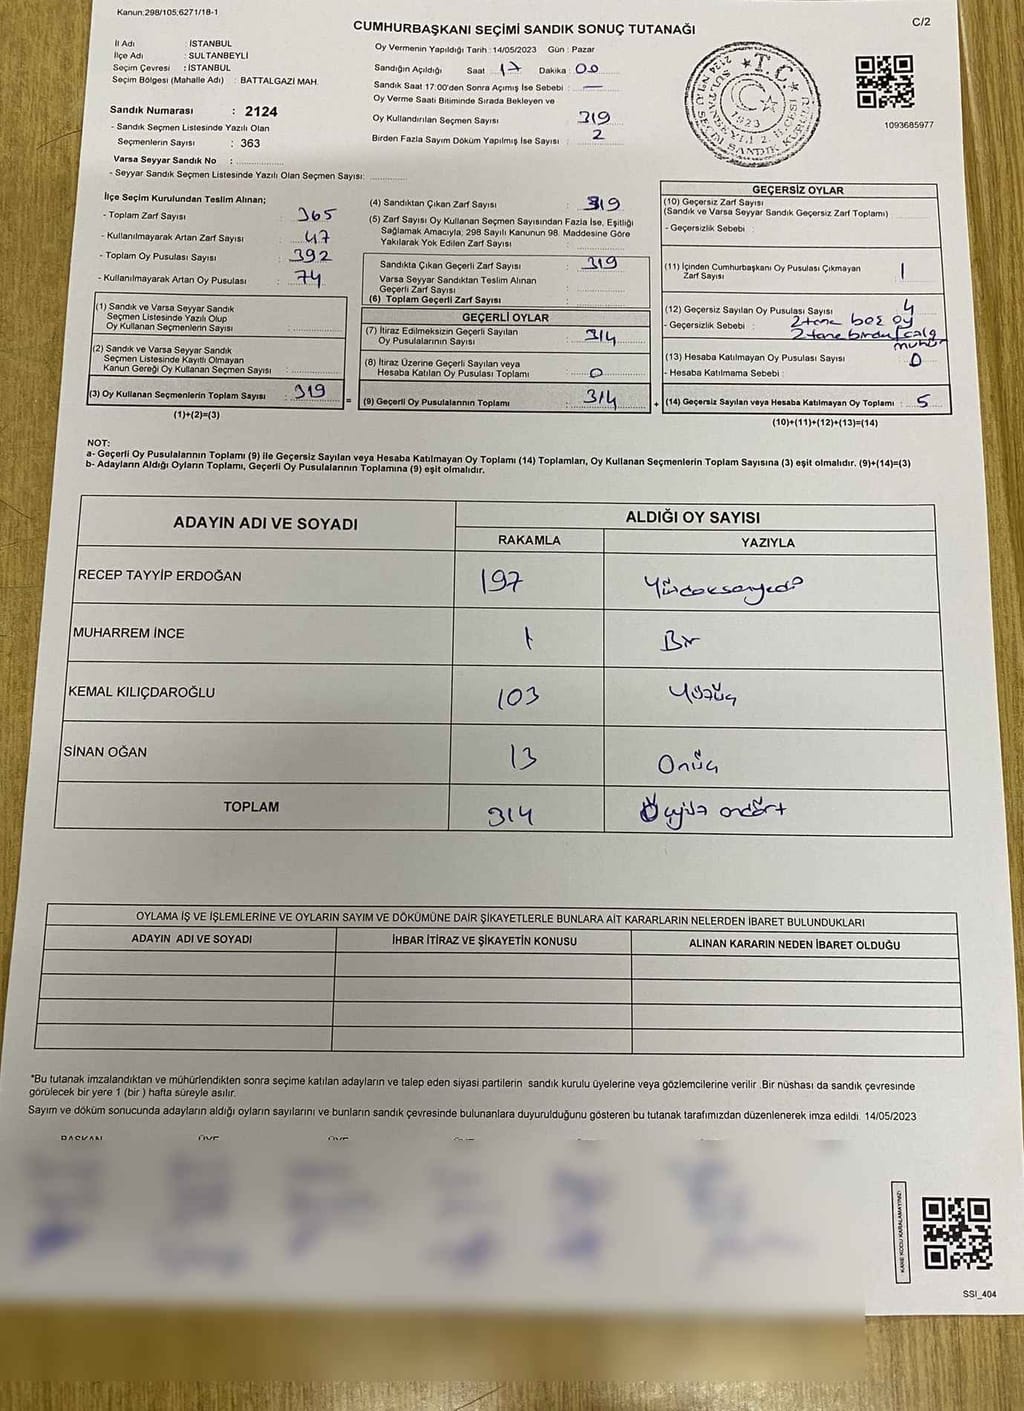 Kanun:298/105,6271/18-1
CUMHURBAŞKANI SEÇİMİ SANDIK SONUÇ TUTANAĞI
C/2
İl Adı : İSTANBUL
İlçe Adı : SULTANBEYLİ
Seçim Çevresi : İSTANBUL
Seçim Bölgesi (Mahalle Adı) : BATTALGAZİ MAH.
Sandık Numarası : 2124
- Sandık Seçmen Listesinde Yazılı Olan
Seçmenlerin Sayısı : 363
Varsa Seyyar Sandık No :
- Seyyar Sandık Seçmen Listesinde Yazılı Olan Seçmen Sayısı:
Oy Vermenin Yapıldığı Tarih :14/05/2023 Gün : Pazar
Sandığın Açıldığı Saat 17 Dakika 00
Sandık Saat 17:00'den Sonra Açımış İse Sebebi : —
Oy Verme Saati Bitiminde Sırada Bekleyen ve
Oy Kullandırılan Seçmen Sayısı 319
Birden Fazla Sayım Döküm Yapılmış İse Sayısı : 2
T.C.
1923
1093685977
İlçe Seçim Kurulundan Teslim Alınan;
- Toplam Zarf Sayısı : 365
- Kullanılmayarak Artan Zarf Sayısı : 47
- Toplam Oy Pusulası Sayısı : 392
- Kullanılmayarak Artan Oy Pusulası : 74
(1) Sandık ve Varsa Seyyar Sandık
Seçmen Listesinde Yazılı Olup
Oy Kullanan Seçmenlerin Sayısı :
(2) Sandık ve Varsa Seyyar Sandık
Seçmen Listesinde Kayıtlı Olmayan
Kanun Gereği Oy Kullanan Seçmen Sayısı :
(3) Oy Kullanan Seçmenlerin Toplam Sayısı : 319
(1)+(2)=(3)
=
(4) Sandıktan Çıkan Zarf Sayısı : 319
(5) Zarf Sayısı Oy Kullanan Seçmen Sayısından Fazla İse, Eşitliği
Sağlamak Amacıyla, 298 Sayılı Kanunun 98. Maddesine Göre
Yakılarak Yok Edilen Zarf Sayısı :
Sandıkta Çıkan Geçerli Zarf Sayısı : 319
Varsa Seyyar Sandıktan Teslim Alınan
Geçerli Zarf Sayısı :
(6) Toplam Geçerli Zarf Sayısı :
GEÇERLİ OYLAR
(7) İtiraz Edilmeksizin Geçerli Sayılan
Oy Pusulalarının Sayısı : 314
(8) İtiraz Üzerine Geçerli Sayılan veya
Hesaba Katılan Oy Pusulası Toplamı : 0
(9) Geçerli Oy Pusulalarının Toplamı : 314
+
GEÇERSİZ OYLAR
(10) Geçersiz Zarf Sayısı
(Sandık ve Varsa Seyyar Sandık Geçersiz Zarf Toplamı)
- Geçersizlik Sebebi :
(11) İçinden Cumhurbaşkanı Oy Pusulası Çıkmayan
Zarf Sayısı : 1
(12) Geçersiz Sayılan Oy Pusulası Sayısı : 4
- Geçersizlik Sebebi : 2 tane boş oy
2 tane birden fazla
mühür
(13) Hesaba Katılmayan Oy Pusulası Sayısı : 0
- Hesaba Katılmama Sebebi :
(14) Geçersiz Sayılan veya Hesaba Katılmayan Oy Toplamı : 5
(10)+(11)+(12)+(13)=(14)
NOT:
a- Geçerli Oy Pusulalarının Toplamı (9) ile Geçersiz Sayılan veya Hesaba Katılmayan Oy Toplamı (14) Toplamları, Oy Kullanan Seçmenlerin Toplam Sayısına (3) eşit olmalıdır. (9)+(14)=(3)
b- Adayların Aldığı Oyların Toplamı, Geçerli Oy Pusulalarının Toplamına (9) eşit olmalıdır.
ADAYIN ADI VE SOYADI
ALDIĞI OY SAYISI
RAKAMLA
YAZIYLA
RECEP TAYYİP ERDOĞAN 197 Yüzdoksanyedi
MUHARREM İNCE 1 Bir
KEMAL KILIÇDAROĞLU 103 Yüzüç
SİNAN OĞAN 13 Onüç
TOPLAM 314 Üçyüz ondört
OYLAMA İŞ VE İŞLEMLERİNE VE OYLARIN SAYIM VE DÖKÜMÜNE DAİR ŞİKAYETLERLE BUNLARA AİT KARARLARIN NELERDEN İBARET BULUNDUKLARI
ADAYIN ADI VE SOYADI
İHBAR İTİRAZ VE ŞİKAYETİN KONUSU
ALINAN KARARIN NEDEN İBARET OLDUĞU
*Bu tutanak imzalandıktan ve mühürlendikten sonra seçime katılan adayların ve talep eden siyasi partilerin sandık kurulu üyelerine veya gözlemcilerine verilir .Bir nüshası da sandık çevresinde
görülecek bir yere 1 (bir ) hafta süreyle asılır.
Sayım ve döküm sonucunda adayların aldığı oyların sayılarını ve bunların sandık çevresinde bulunanlara duyurulduğunu gösteren bu tutanak tarafımızdan düzenlenerek imza edildi. 14/05/2023
BAŞKAN ÜYE ÜYE ÜYE
KARE KODU KARALAMAYINIZ!
SSI_404